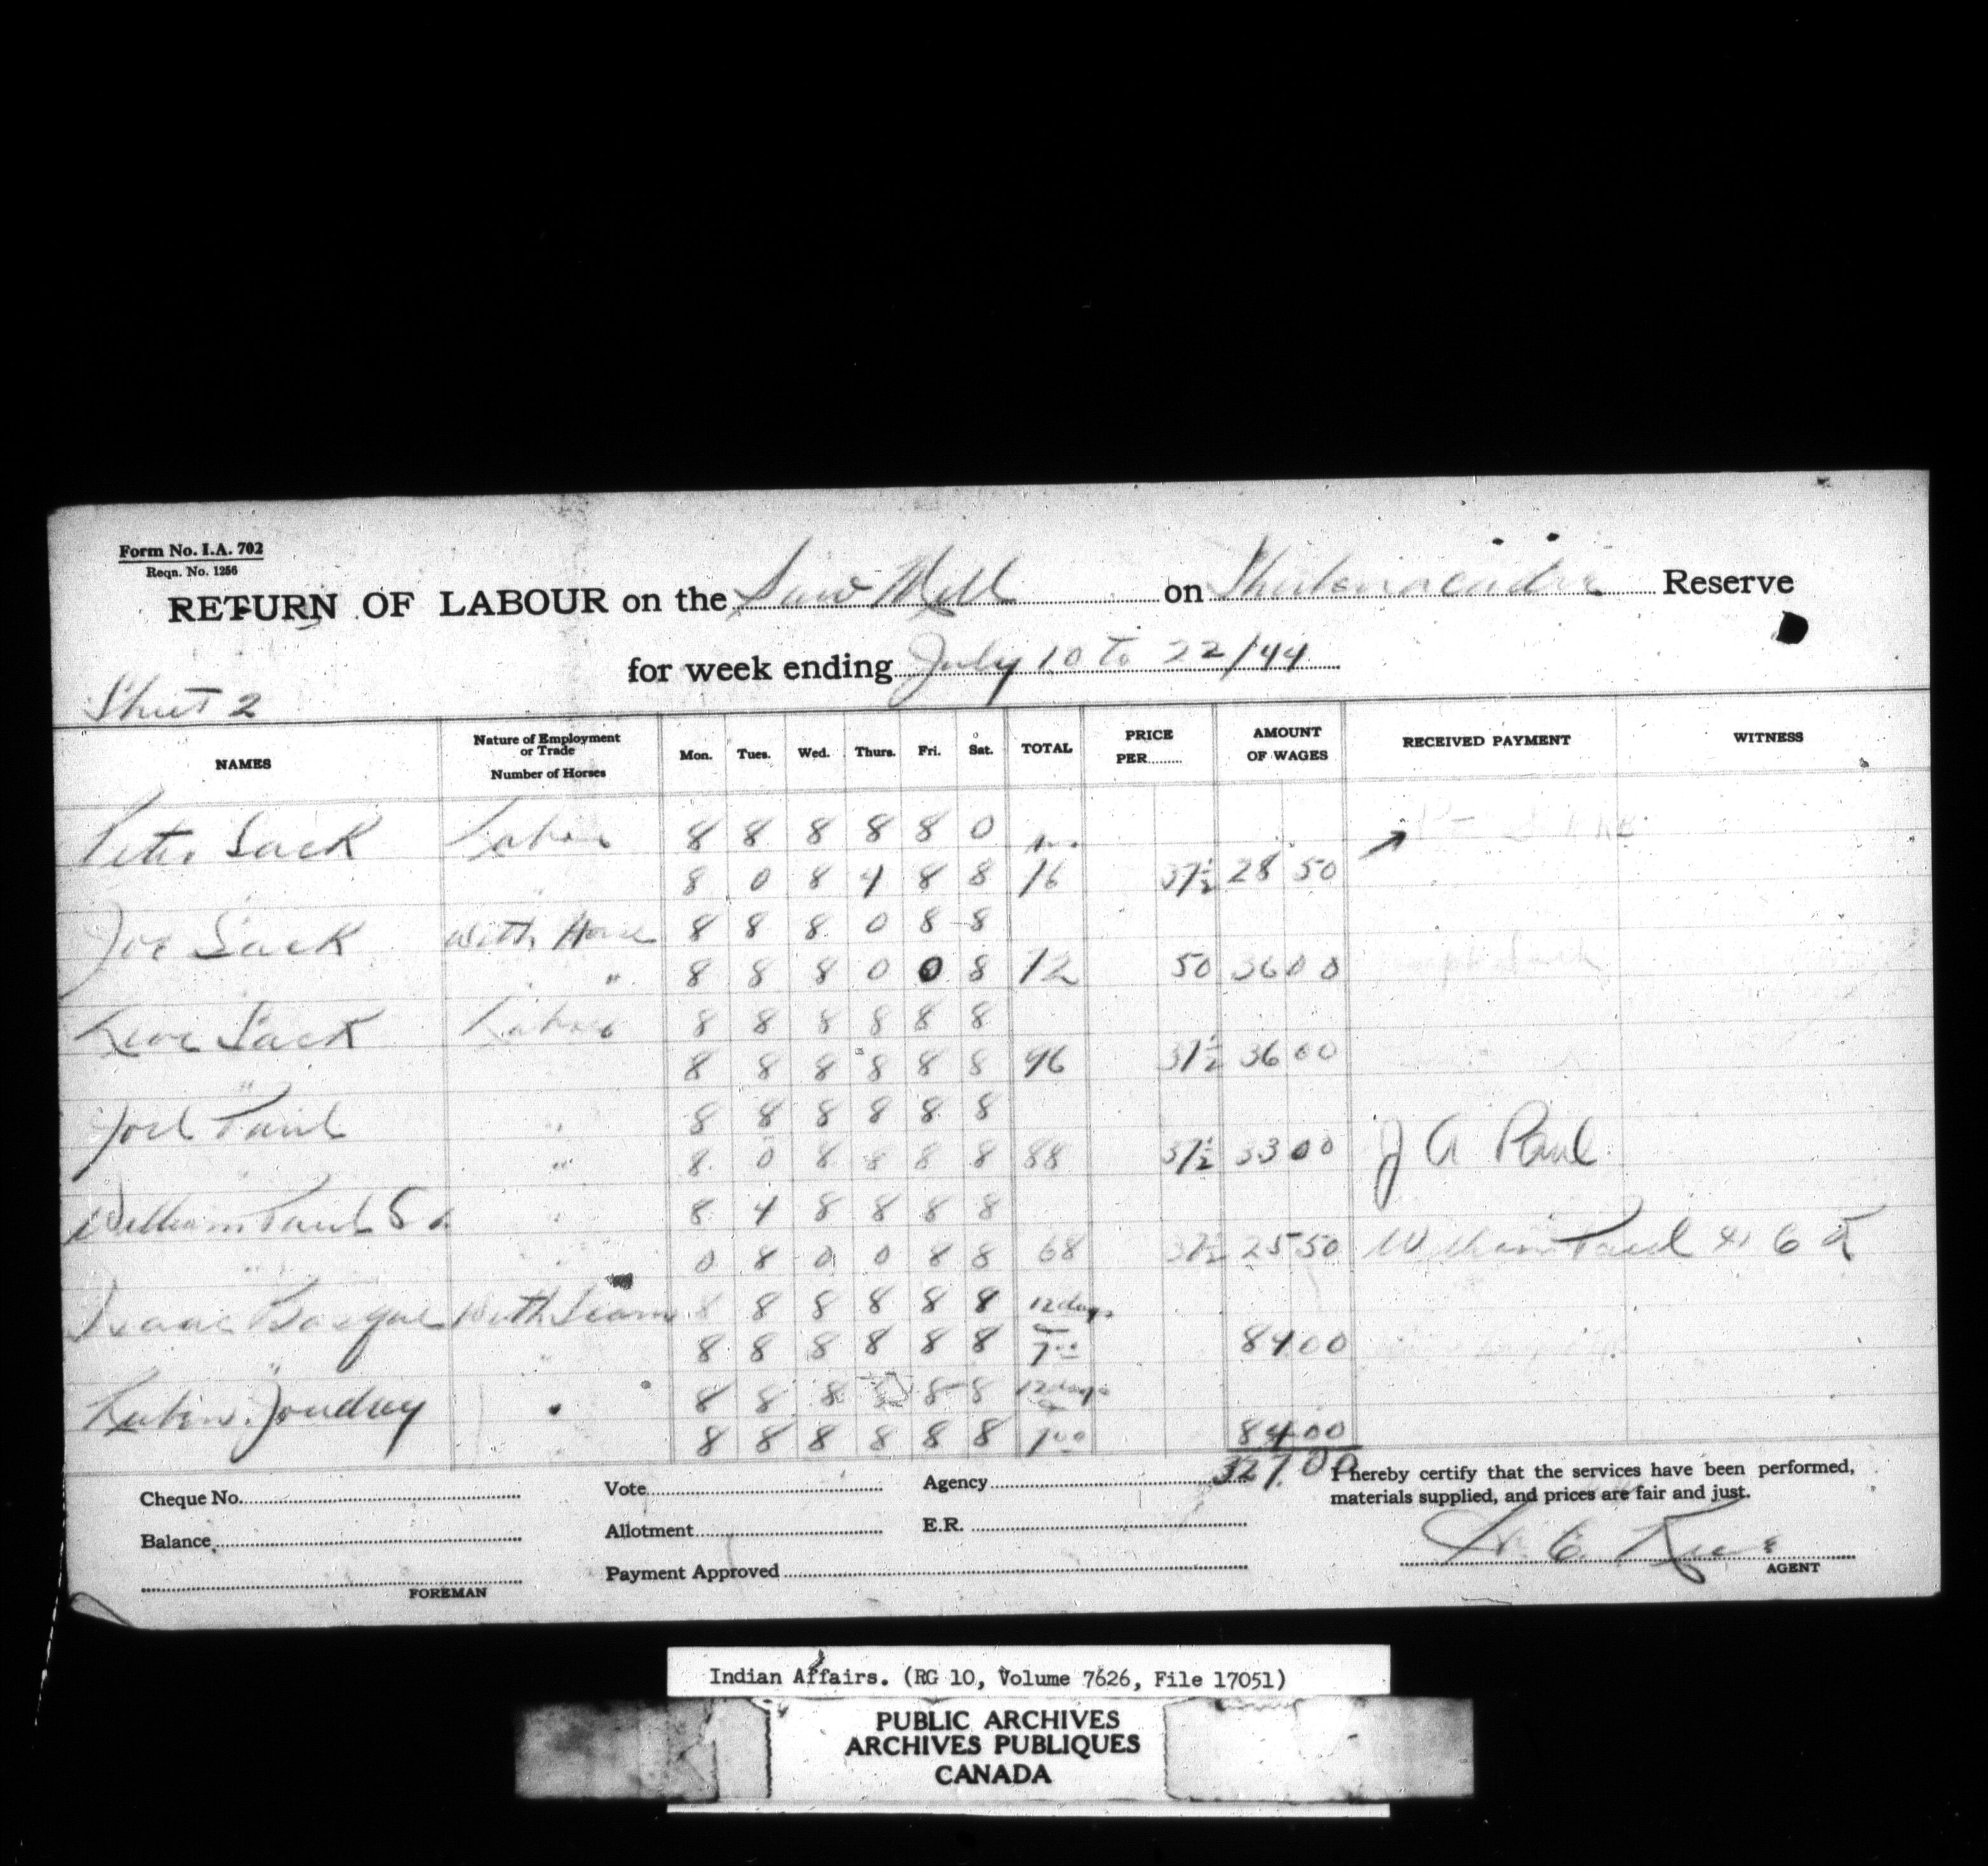 Form No. I.A. 702
Reqn. No. 1256
RETURN OF LABOUR on the Saw Mill on Shubenacadie Reserve
for week ending July 10 to 22/44
Sheet 2
NAMES Nature of Employment or Trade Number of Horses Mon. Tues. Wed. Thurs. Fri. Sat. TOTAL PRICE PER AMOUNT OF WAGES RECEIVED PAYMENT WITNESS
Peter Sack Labor 8 8 8 8 8 0
8 0 8 4 8 8 76 37½ 28 50
Joe Sack With Horse 8 8 8 0 8 8
" 8 8 8 0 0 8 72 50 36 00
Sack Labor 8 8 8 8 8 8
8 8 8 8 8 8 96 37½ 36 00
Joel Paul " 8 8 8 8 8 8
" 8 0 8 8 8 8 88 37½ 33 00 J A Paul
William Paul Sr " 8 4 8 8 8 8
" 0 8 0 0 8 8 68 37½ 25 50 William Paul
Isaac Basque With Team 8 8 8 8 8 8 12 days
" 8 8 8 8 8 8 7 00 84 00
Joudrey 8 8 8 8 8 8 12 days
8 8 8 8 8 8 7 00 84 00
327.00
Cheque No. Vote Agency I hereby certify that the services have been performed,
materials supplied, and prices are fair and just.
Balance Allotment E.R.
Payment Approved
FOREMAN AGENT
Indian Affairs. (RG 10, Volume 7626, File 17051)
PUBLIC ARCHIVES
ARCHIVES PUBLIQUES
CANADA